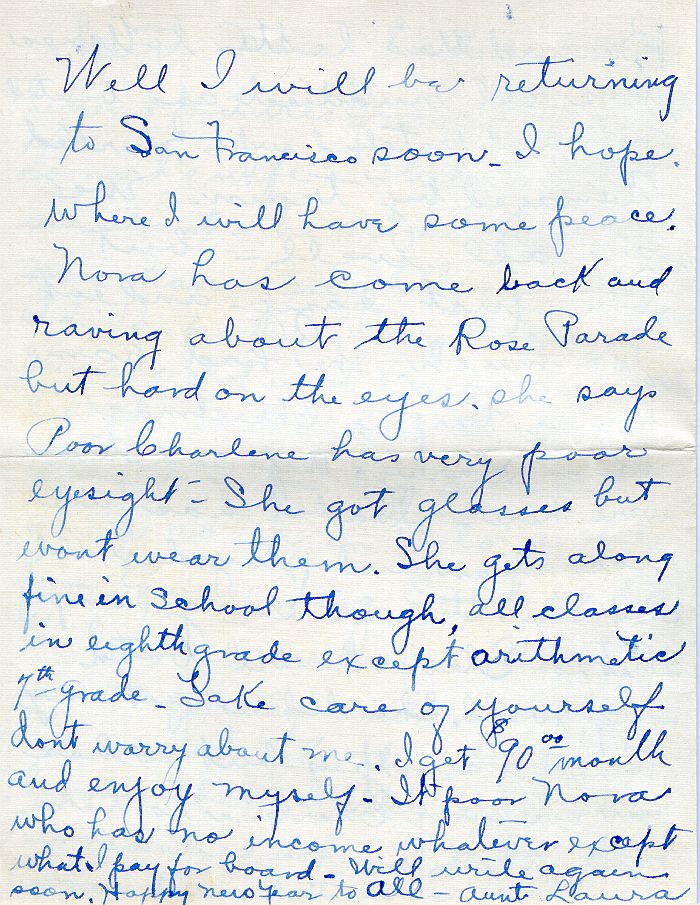 Well I will be returning
to San Francisco soon - I hope.
where I will have some peace.
Nova has come back and
raving about the Rose Parade
but hard on the eyes. she says
Poor Charlene has very poor
eyesight - She got glasses but
wont wear them. She gets along
fine in School though, all classes
in eighth grade except arithmetic
7th grade - Take care of yourself
dont worry about me. I get $90 00 month
and enjoy myself - It poor Nova
who has no income whatever except
what I pay for board - Will write again
soon. Happy New Year to all - Aunt Laura